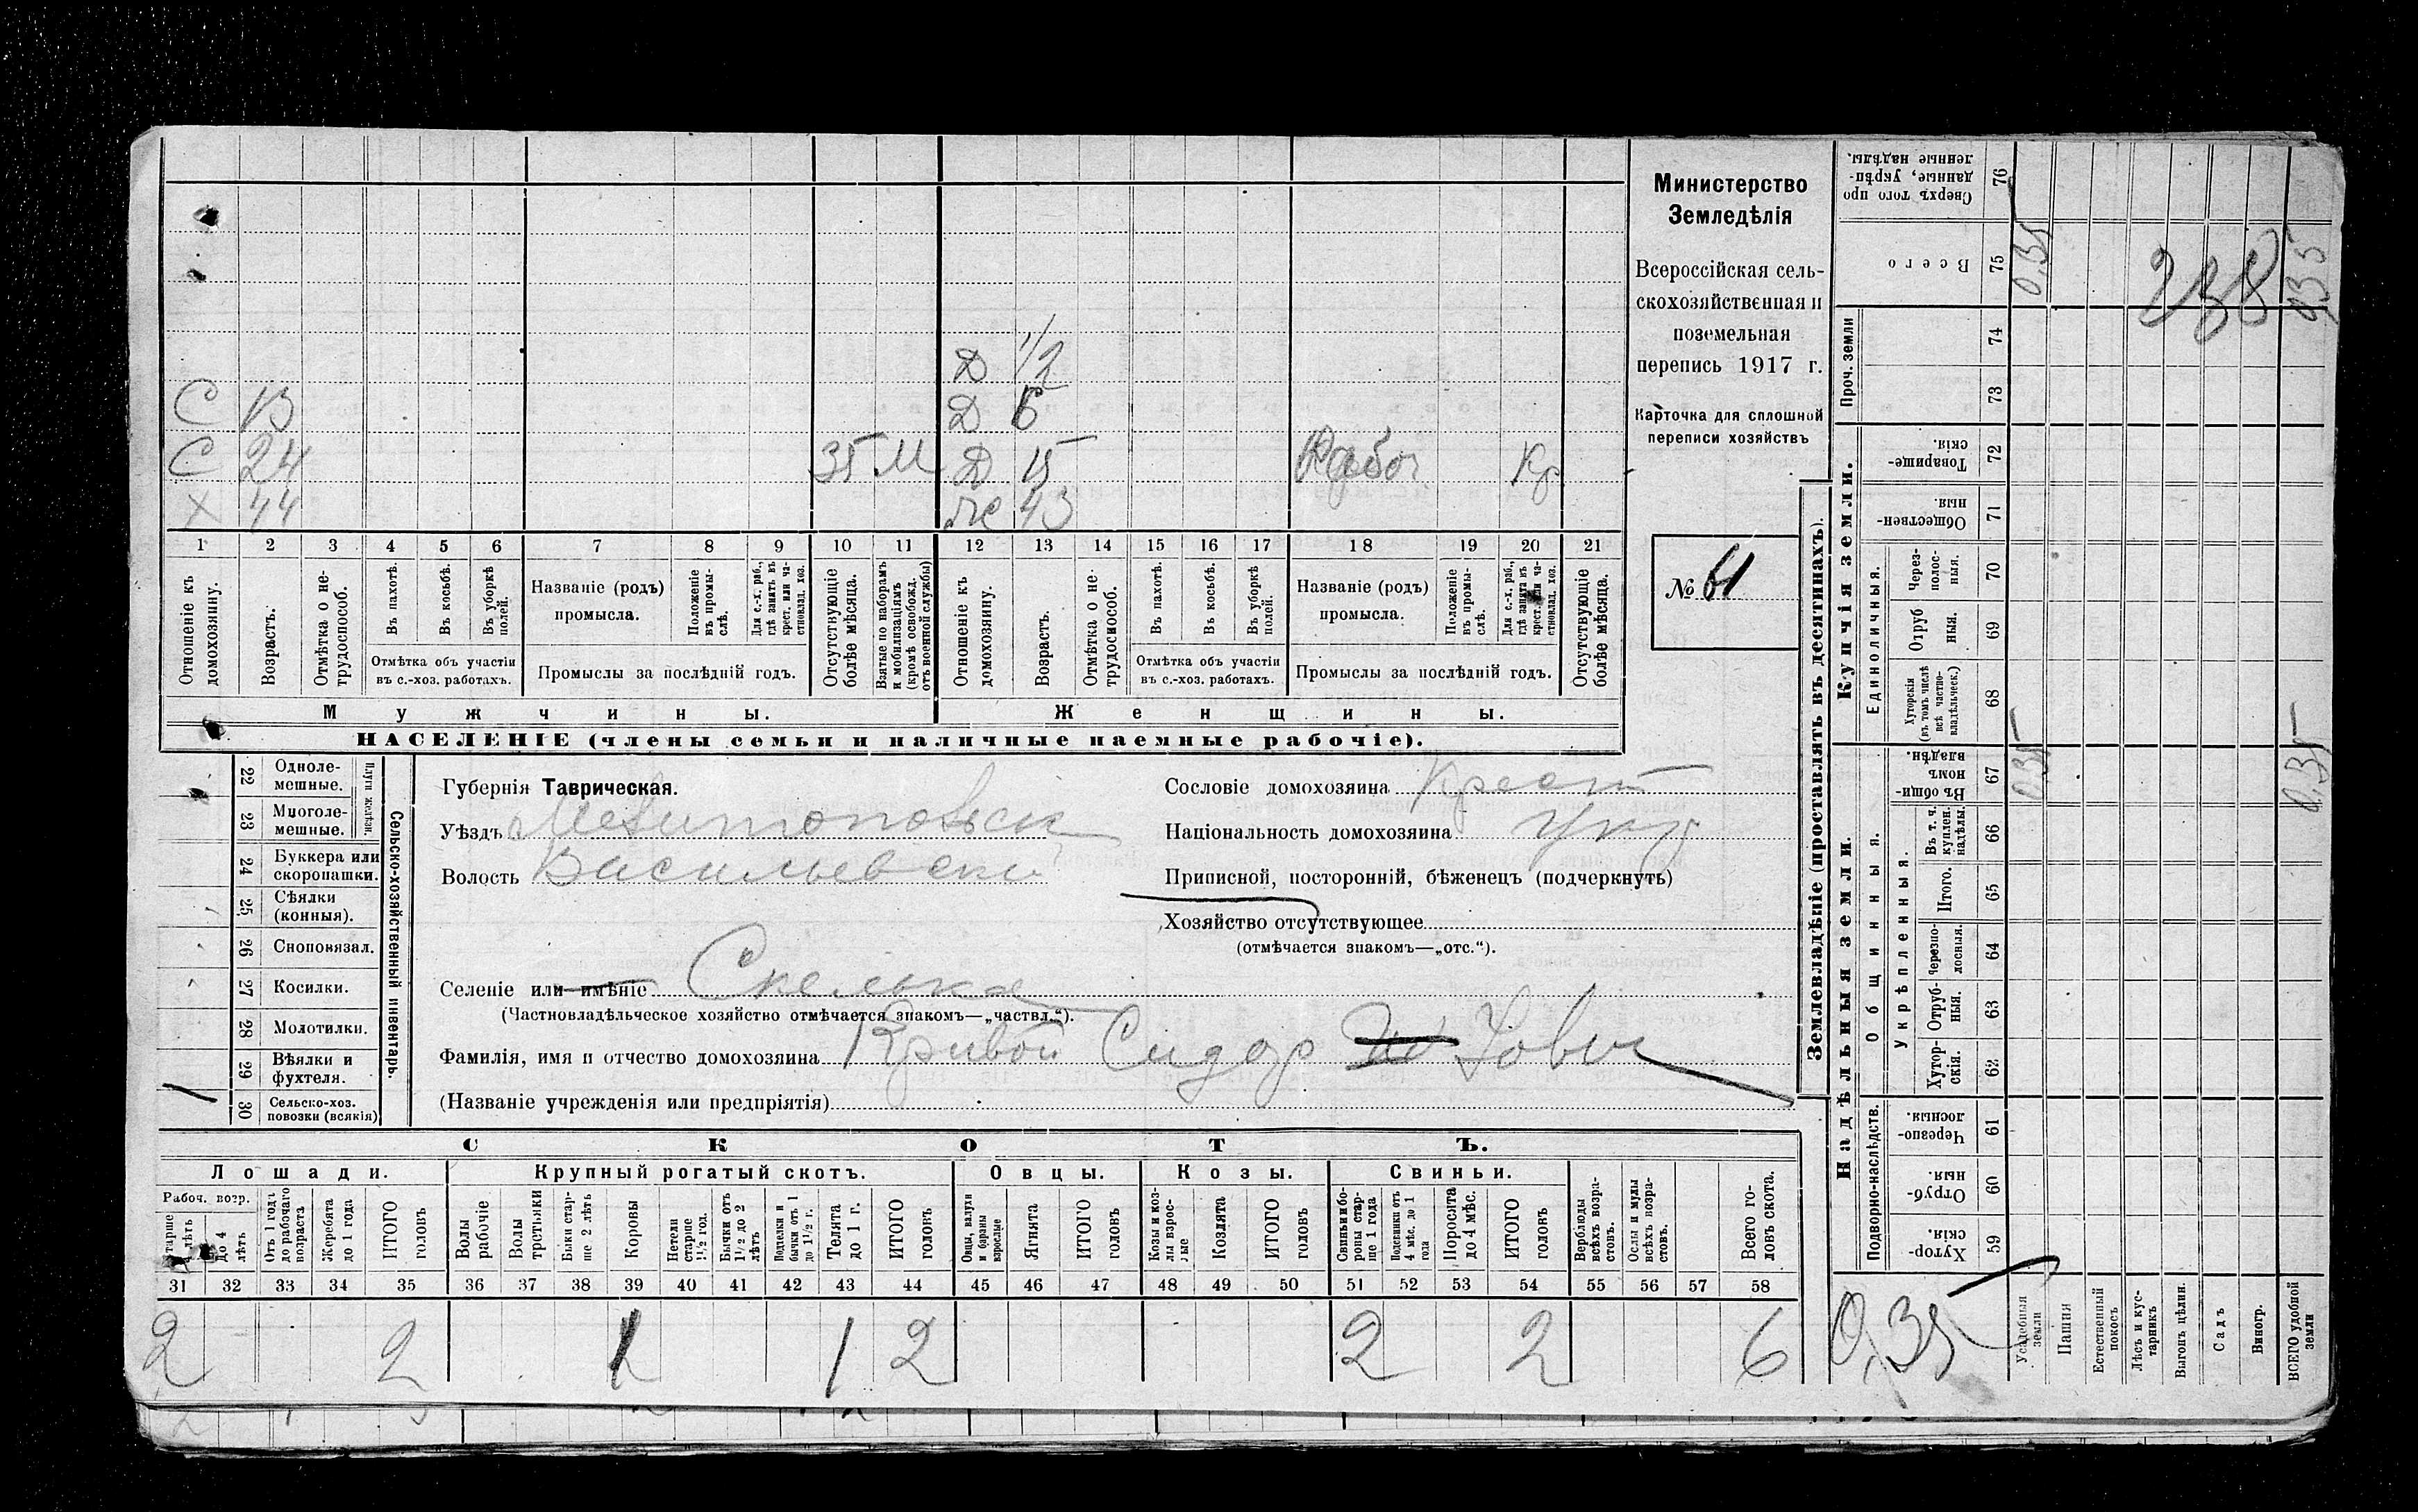 С 13
С 24 35 М
Х 44
Д 1/2
Д 6
Д 15 Кр
Же 43
1 2 3 4 5 6 7 8 9 10 11 12 13 14 15 16 17 18 19 20 21
Отношеніе къ домохозяину.
Возрастъ.
Отмѣтка о не-трудоспособ.
Въ пахотѣ.
Въ косьбѣ.
Въ уборкѣ полей.
Отмѣтка объ участіи
въ с.-хоз. работахъ.
Названіе (родъ)
промысла.
Положеніе въ промы-слѣ.
Для с.-х. раб., гдѣ занятъ въ крест. или ча-стновлад. хоз.
Промыслы за послѣдній годъ.
Отсутствующіе болѣе мѣсяца.
Взятые по наборамъ и мобилизаціямъ (кромѣ освобожд. отъ военной службы)
Отношеніе къ домохозяину.
Возрастъ.
Отмѣтка о не-трудоспособ.
Въ пахотѣ.
Въ косьбѣ.
Въ уборкѣ полей.
Отмѣтка объ участіи
въ с.-хоз. работахъ.
Названіе (родъ)
промысла.
Положеніе въ промы-слѣ.
Для с.-х. раб., гдѣ занятъ въ крест. или ча-стновлад. хоз.
Промыслы за послѣдній годъ.
Отсутствующіе болѣе мѣсяца.
Мужчины.
Женщины.
НАСЕЛЕНІЕ (члены семьи и наличные наемные рабочіе).
Министерство
Земледѣлія
Всероссійская сель-
скохозяйственная и
поземельная
перепись 1917 г.
Карточка для сплошной
переписи хозяйствъ
№ 61
Сельско-хозяйственный инвентарь.
Плуги желѣзн.
22 Одноле-мешные.
23 Многоле-мешные.
24 Буккера или скоропашки.
25 Сѣялки (конныя).
26 Сноповязал.
27 Косилки.
28 Молотилки.
29 Вѣялки и фухтеля.
30 Сельско-хоз. повозки (всякія)
1
Губернія Таврическая.
Уѣздъ Мелитопольск
Волость Васильевска
Сословіе домохозяина Крест
Національность домохозяина Укр
Приписной, посторонній, бѣженецъ (подчеркнуть)
Хозяйство отсутствующее
(отмѣчается знакомъ—„отс.“).
Селеніе или имѣніе Скелька
(Частновладѣльческое хозяйство отмѣчается знакомъ—„частвл.“).
Фамилія, имя и отчество домохозяина Кривой Сидор
(Названіе учрежденія или предпріятія)
СКОТЪ.
Лошади.
Крупный рогатый скотъ.
Овцы.
Козы.
Свиньи.
Рабоч. возр.
Старше 4 лѣтъ
До 4 лѣтъ
Отъ 1 года до рабочаго возраста
Жеребята до 1 года
ИТОГО головъ
Волы рабочіе
Волы третьяки
Быки стар-ше 2 лѣтъ
Коровы
Нетели старше 1½ год.
Бычки отъ 1½ до 2 лѣтъ
Подтелки и бычки отъ 1 до 1½ г.
Телята до 1 г.
ИТОГО головъ
Овцы, валухи и бараны взрослые
Ягнята
ИТОГО головъ
Козы и коз-лы взрос-лые
Козлята
ИТОГО головъ
Свиньи и бо-ровы стар-ше 1 года
Подсвинки отъ 4 мѣс. до 1 года
Поросята до 4 мѣс.
ИТОГО головъ
Верблюды всѣхъ возра-стовъ.
Ослы и мулы всѣхъ возра-стовъ.
Всего го-ловъ скота.
31 32 33 34 35 36 37 38 39 40 41 42 43 44 45 46 47 48 49 50 51 52 53 54 55 56 57 58
2 2 1 1 2 2 2 6
Землевладѣніе (проставлять въ десятинахъ).
Надѣльныя земли.
Купчія земли.
Проч. земли
Подворно-наслѣдств.
Общинныя.
Укрѣпленныя.
Единоличныя.
Хутор-скія. 59
Отруб-ныя. 60
Черезпо-лосныя. 61
Хутор-скія. 62
Отруб-ныя. 63
Черезпо-лосныя. 64
Итого. 65
Въ т. ч. куплен. надѣлы. 66
Въ общи-номъ владѣн. 67
Хуторскія (въ томъ числѣ всѣ частно-владѣльческ.) 68
Отруб ныя. 69
Через-полос-ныя. 70
Обществен-ныя 71
Товарище-скія. 72
73
74
Всего 75
Сверхъ того про данные, укрѣп-ленные надѣлы. 76
Усадебныя земли
Пашня
Естественный покосъ
Лѣсъ и кус-тарникъ
Выгонъ цѣлин.
Садъ
Виногр.
ВСЕГО удобной земли
0,35
0,35
0,35
0,35
0,35
238